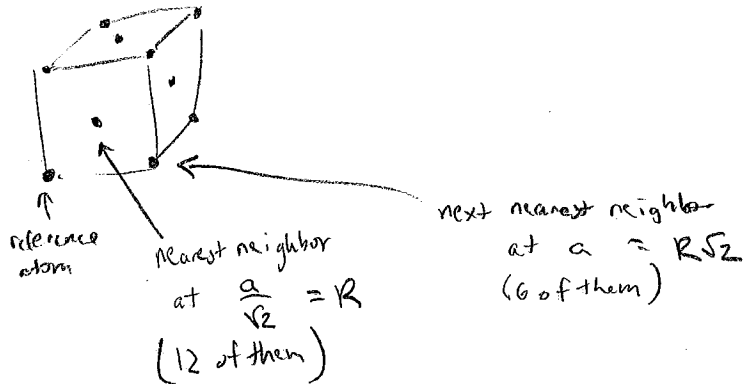 reference
atom
nearest neighbor
at a/√2 = R
(12 of them)
next nearest neighbor
at a = R√2
(6 of them)